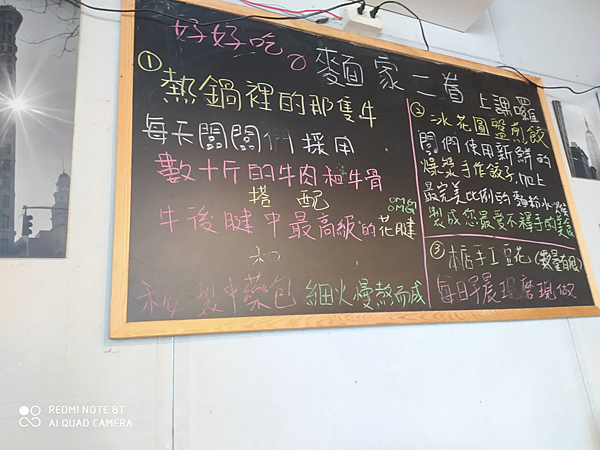 好好吃。麵家二首 上課囉
① 熱鍋裡的那隻牛
每天闆闆們採用
數十斤的牛肉和牛骨
搭配
OMG
OMG
牛後腱中最高級的花腱
和
秘製中藥包 細火慢熬而成
② 冰花圓盤煎餃
闆們使用新鮮的
爆漿手作餃子,加上
最完美比例的麵粉水
製成您最愛不釋手的美食
③ 本店手工豆花(數量有限)
每日早晨現磨現做
REDMI NOTE 8T
AI QUAD CAMERA